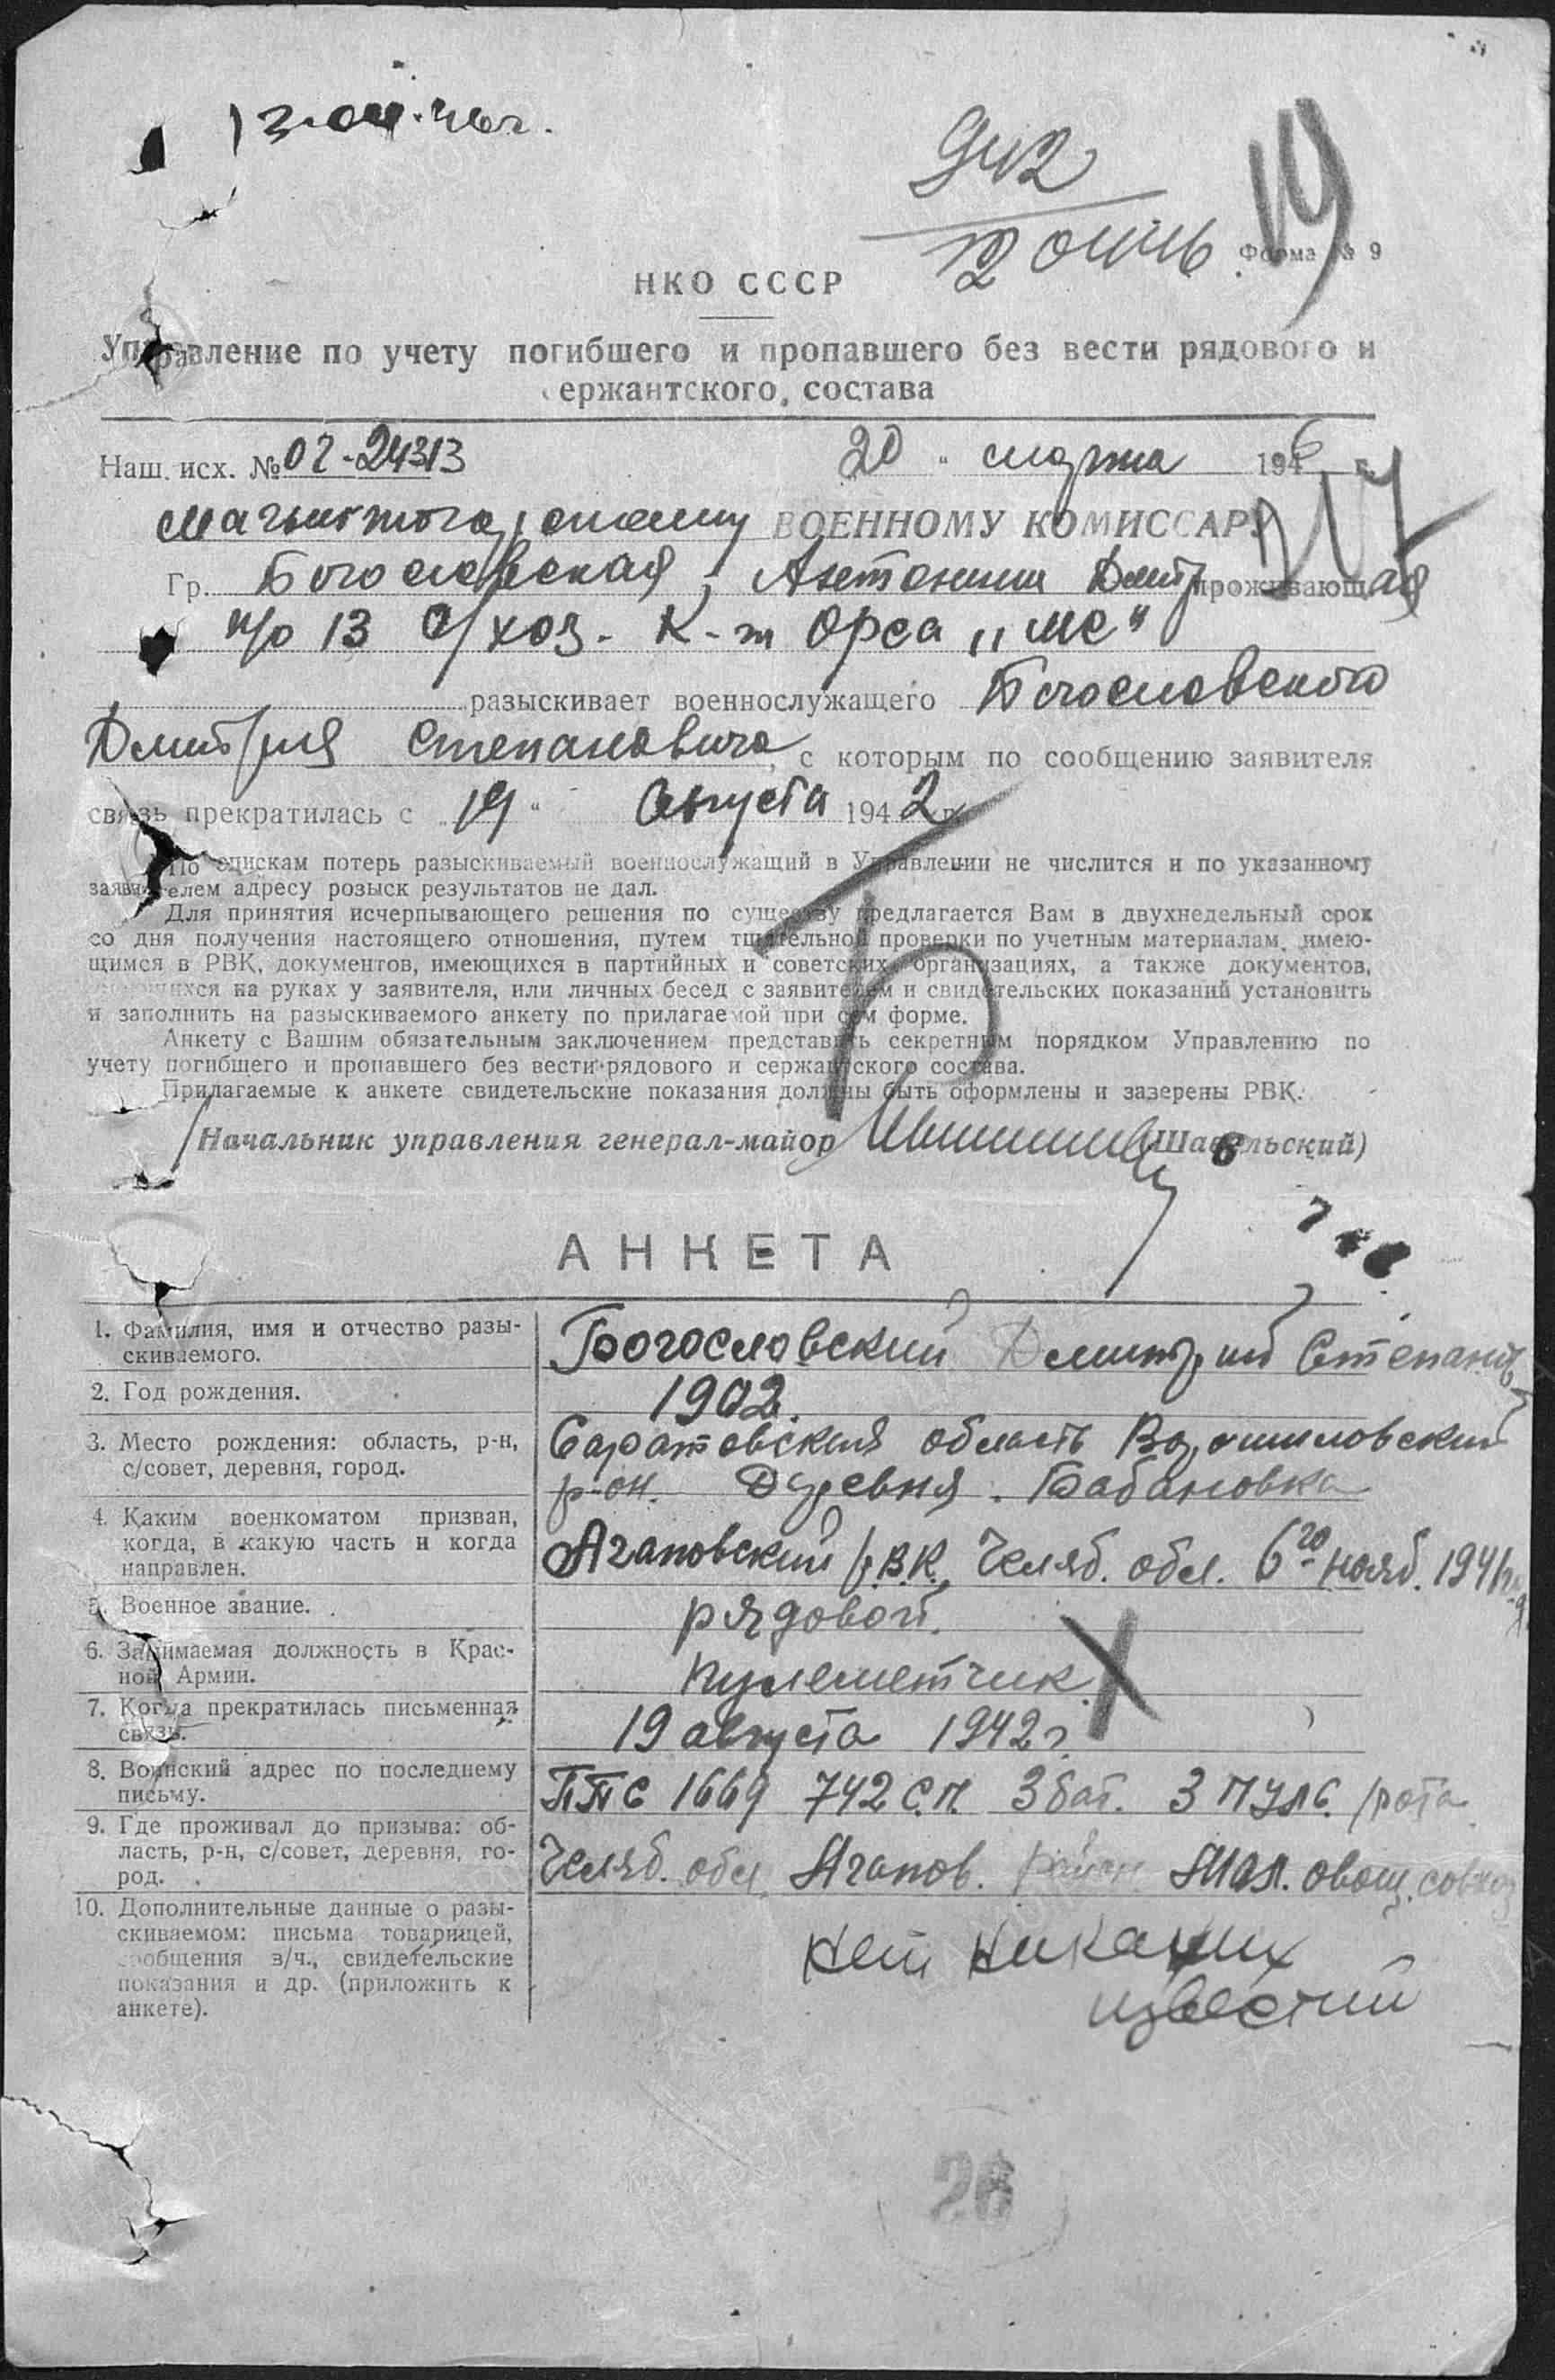 13-04-46г.
19
Форма № 9
НКО СССР
Управление по учету погибшего и пропавшего без вести рядового и
сержантского состава
Наш. исх. № 02-24313 20 " марта 1946 г.
Магнитогорскому ВОЕННОМУ КОМИССАРУ
Гр. Богословская, Антонина Дмитр проживающая
п/о 13 с/хоз. К-т Орса "МС"
разыскивает военнослужащего Богословского
Дмитрия Степановича, с которым по сообщению заявителя
связь прекратилась с „ 19 " Августа 1942 г.
По спискам потерь разыскиваемый военнослужащий в Управлении не числится и по указанному
заявителем адресу розыск результатов не дал.
Для принятия исчерпывающего решения по существу предлагается Вам в двухнедельный срок
со дня получения настоящего отношения, путем тщательной проверки по учетным материалам, имею-
щимся в РВК, документов, имеющихся в партийных и советских организациях, а также документов,
имеющихся на руках у заявителя, или личных бесед с заявителем и свидетельских показаний установить
и заполнить на разыскиваемого анкету по прилагаемой при сем форме.
Анкету с Вашим обязательным заключением представить секретным порядком Управлению по
учету погибшего и пропавшего без вести рядового и сержантского состава.
Прилагаемые к анкете свидетельские показания должны быть оформлены и заверены РВК.
Начальник управления генерал-майор (Шавельский)
АНКЕТА
1. Фамилия, имя и отчество разы-
скиваемого. Богословский Дмитрий Степанов
2. Год рождения. 1902.
3. Место рождения: область, р-н,
с/совет, деревня, город. Саратовская область Ворошиловский
р-он. Деревня. Бабановка
4. Каким военкоматом призван,
когда, в какую часть и когда
направлен. Агаповский Р.В.К., Челяб. обл. 6го нояб. 1941
5. Военное звание. рядовой.
6. Занимаемая должность в Крас-
ной Армии. пулеметчик.
7. Когда прекратилась письменная
связь. 19 августа 1942г.
8. Воинский адрес по последнему
письму. ППС 1669 742 С.П. 3 бат. 3 пул. рота
9. Где проживал до призыва: об-
ласть, р-н, с/совет, деревня, го-
род. Челяб. обл. Агапов. район овощ. совхоз
10. Дополнительные данные о разы-
скиваемом: письма товарищей,
сообщения в/ч., свидетельские
показания и др. (приложить к
анкете). Нет никаких
известий
26